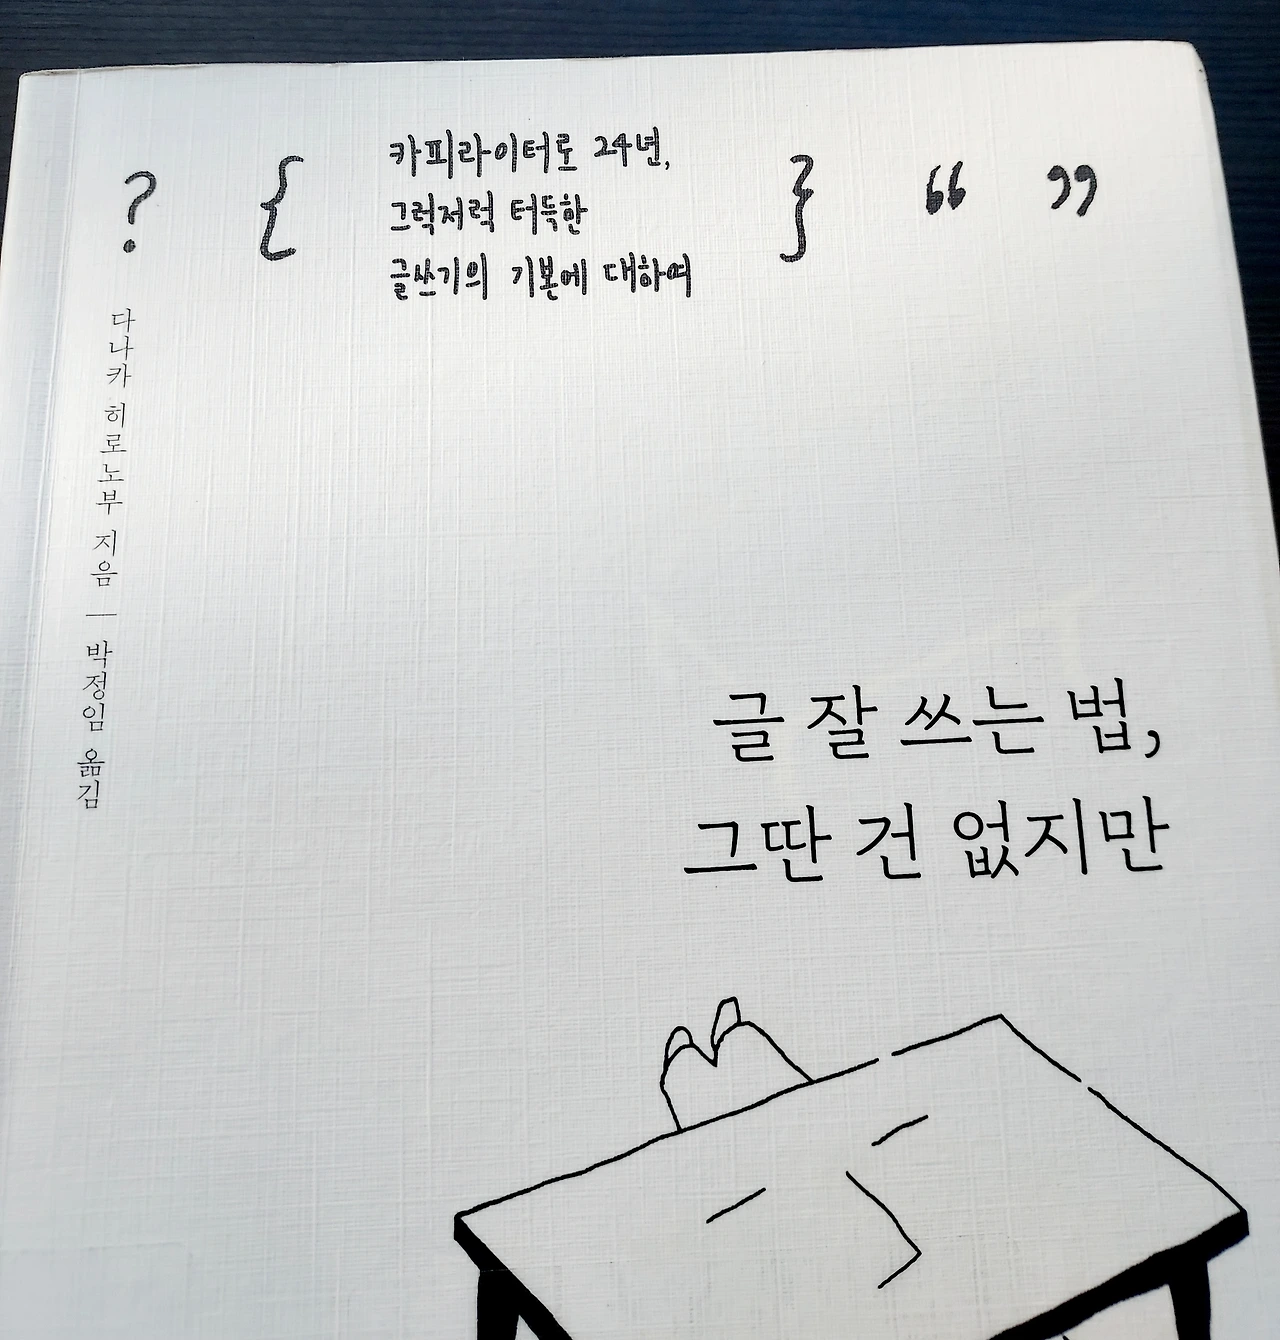 ?
{ 카피라이터로 24년,
그럭저럭 터득한
글쓰기의 기본에 대하여 }
“ ”
다나카 히로노부 지음 — 박정임 옮김
글 잘 쓰는 법,
그딴 건 없지만